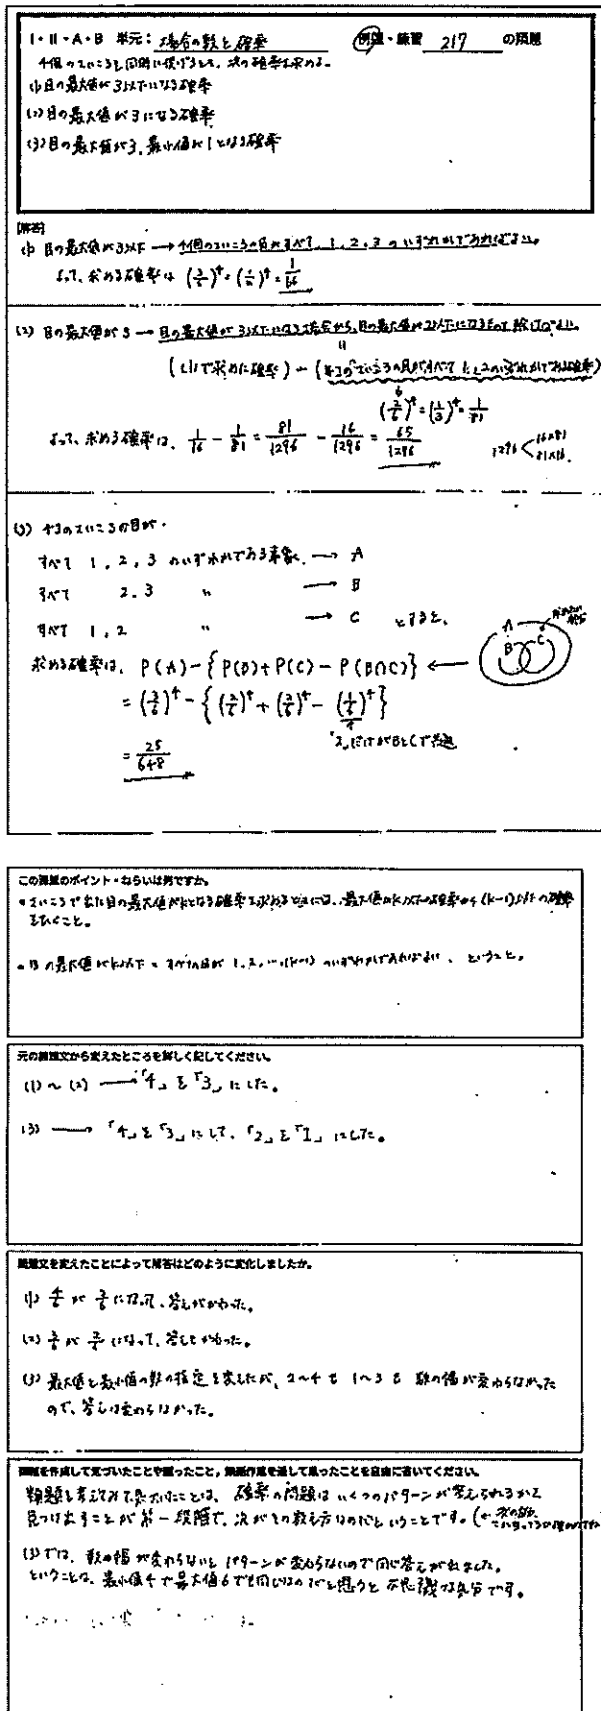 I・II・A・B 単元：場合の数と確率 例題・練習 217 の類題
4個のさいころを同時に投げるとき、次の確率を求めよ。
(1) 目の最大値が3以下になる確率
(2) 目の最大値が3になる確率
(3) 目の最大値が3、最小値が1となる確率
[解答]
(1) 目の最大値が3以下 → 4個のさいころの目がすべて、1, 2, 3 のいずれかであればよい。
よって、求める確率は (3/6)^4 = (1/2)^4 = 1/16
(2) 目の最大値が3 → 目の最大値が3以下になる確率から、目の最大値が2以下になるものを除けばよい。
((1)で求めた確率) − (4コのさいころの目がすべて 1, 2のいずれかである確率)
(2/6)^4 = (1/3)^4 = 1/81
よって、求める確率は、 1/16 − 1/81 = 81/1296 − 16/1296 = 65/1296 1296 < 16×81 81×16
(3) 4コのさいころの目が、
すべて 1, 2, 3 のいずれかである事象 → A
すべて 2, 3 〃 → B
すべて 1, 2 〃 → C とすると、
求める確率は、 P(A) − {P(B) + P(C) − P(B∩C)} ← A B C
= (3/6)^4 − {(2/6)^4 + (2/6)^4 − (1/6)^4}
「2」だけがBとCで共通
= 25/648
この問題のポイント・ねらいは何ですか。
・さいころで出た目の最大値がkとなる確率を求めるときには、最大値がk以下の確率から(k−1)以下の確率
をひくこと。
・目の最大値がk以下 = すべての目が 1, 2, …, (k−1) のいずれかであればよい、ということ。
元の問題文から変えたところを詳しく記してください。
(1)〜(2) → 「4」を「3」にした。
(3) → 「4」を「3」にして、「2」を「1」にした。
問題文を変えたことによって解答はどのように変化しましたか。
(1) 4/6 が 3/6 になって、答えがかわった。
(2) 3/6 が 2/6 になって、答えもかわった。
(3) 最大値と最小値の数の指定を変えたが、2〜4も1〜3も 数の幅が変わらなかった
ので、答えは変わらなかった。
類題を作成して気づいたことや困ったこと，類題作成を通して思ったことを自由に書いてください。
類題を考えてみて思ったことは、確率の問題は いくつのパターンが考えられるかを
見つけ出すことが第一段階で、次がその数え方なのだということです。
(3)では、数の幅が変わらないとパターンが変わらないので同じ答えがでました。
ということは、最小値4で最大値6でも同じなのだと思うと 不思議な気分です。